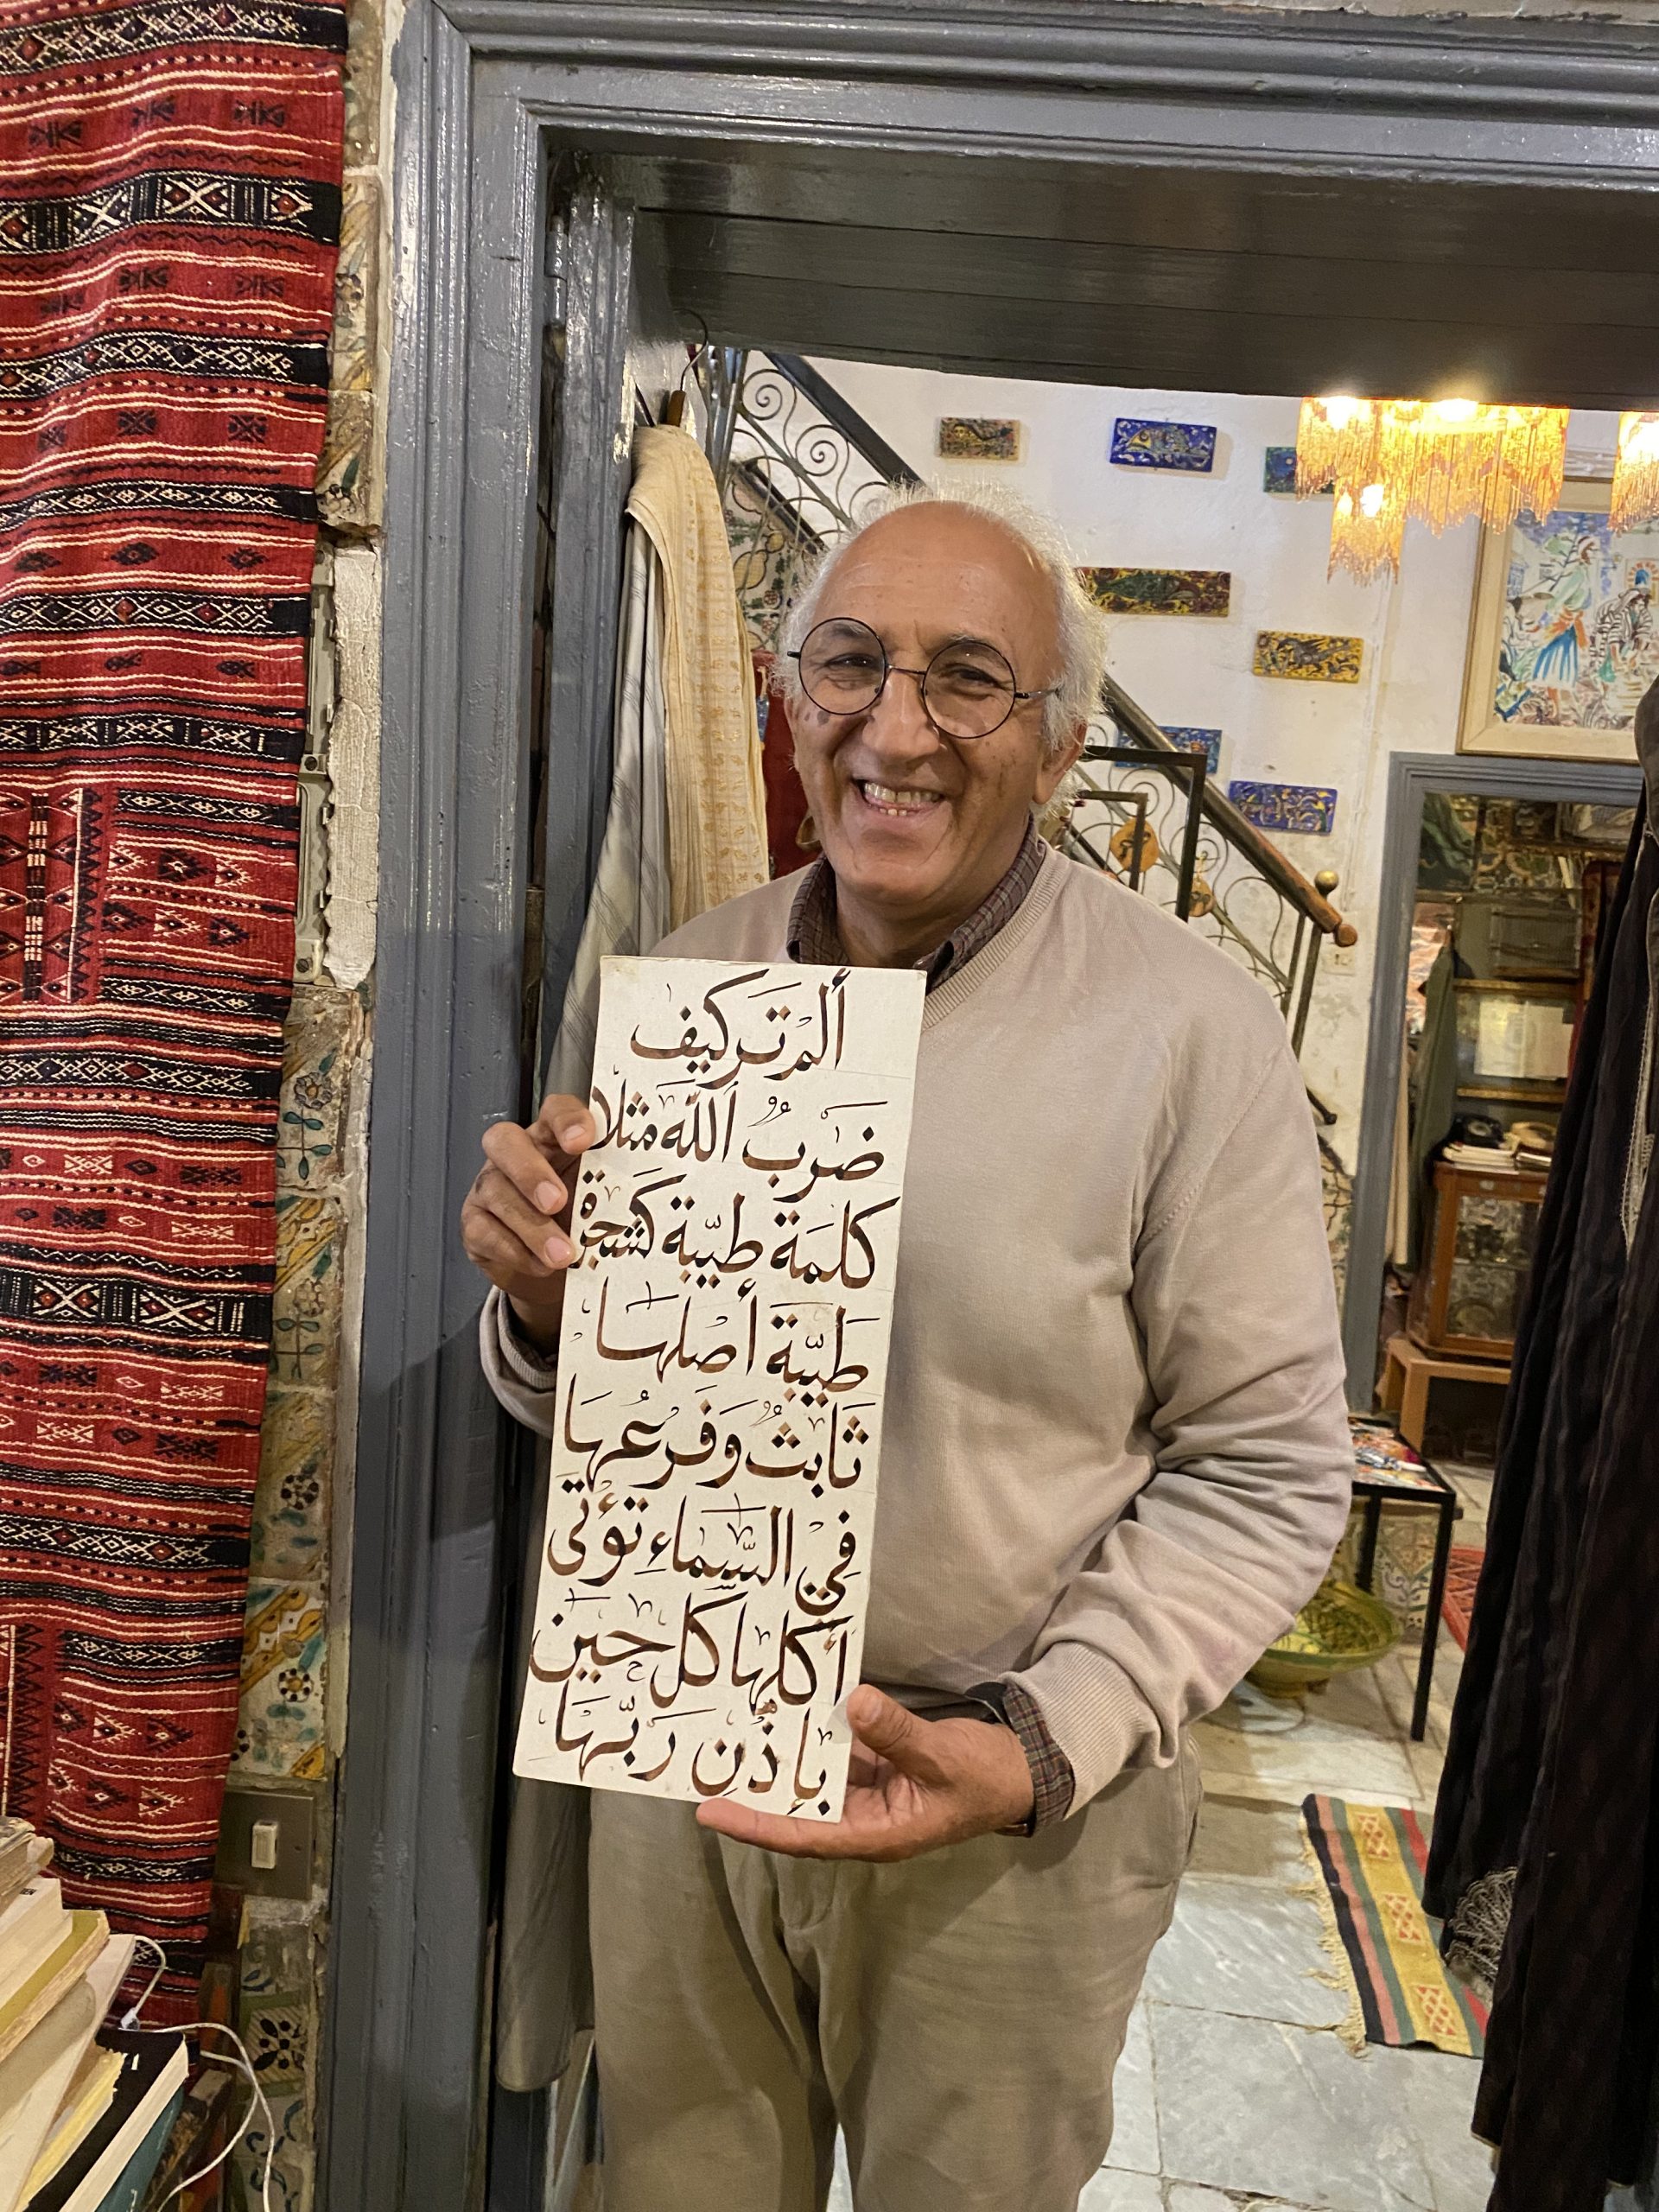 ألمْ تَركيف
ضَربُ ٱللَّه مثلا
كلمَة طيّبة كَشجرة
طَيّبَة أصْلهَا
ثَابتٌ وَفَرْعُهَا
فِيْ السَّمَاءِ تؤتى
أكلهَا كلَّ حين
بإذْنِ رَبّهَا